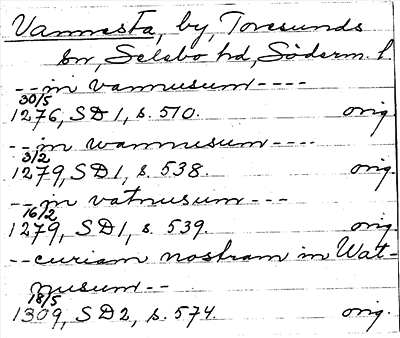 Vannesta, by, Toresunds
sn, Selebo hd, Söderm. l.
--in vannusum----
30/5
1276, SD1, s. 510. orig.
--in wannusum----
3/2
1279, SD1, s. 538. orig.
--in vatnusum---
16/2
1279, SD1, s. 539. orig.
--curiam nostram in Wat-
nusum--
18/5
1309, SD2, s. 574. orig.